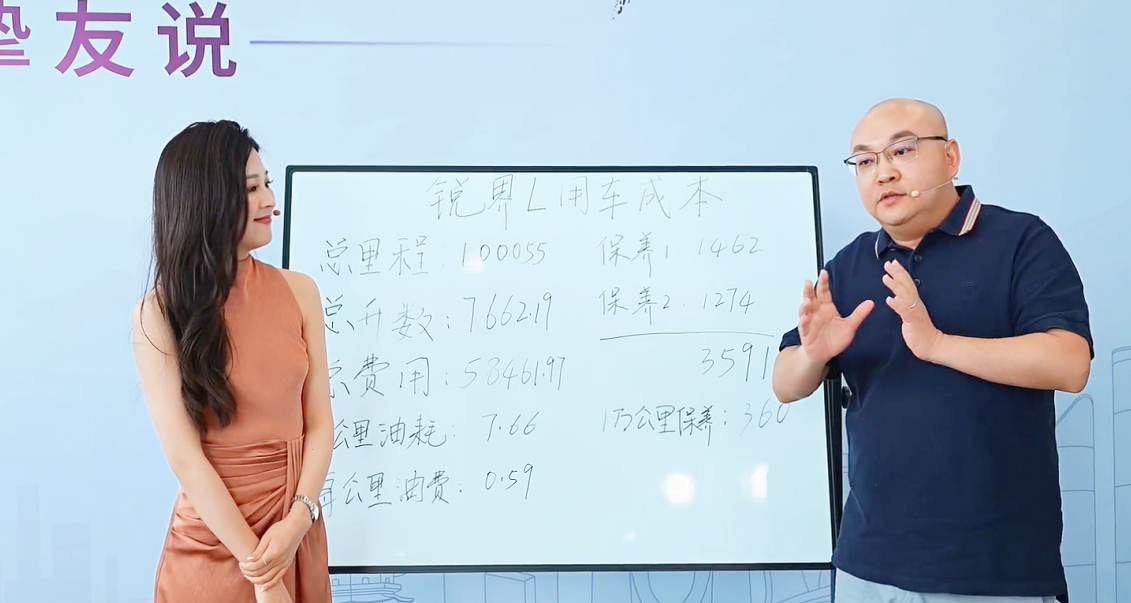 挚友说
锐界L用车成本
总里程:100055
总升数:7662.19
总費用:58461.97
公里油耗:7.66
每公里油费:0.59
保养1 1462
保养2.1274
3591
1万公里保养:360